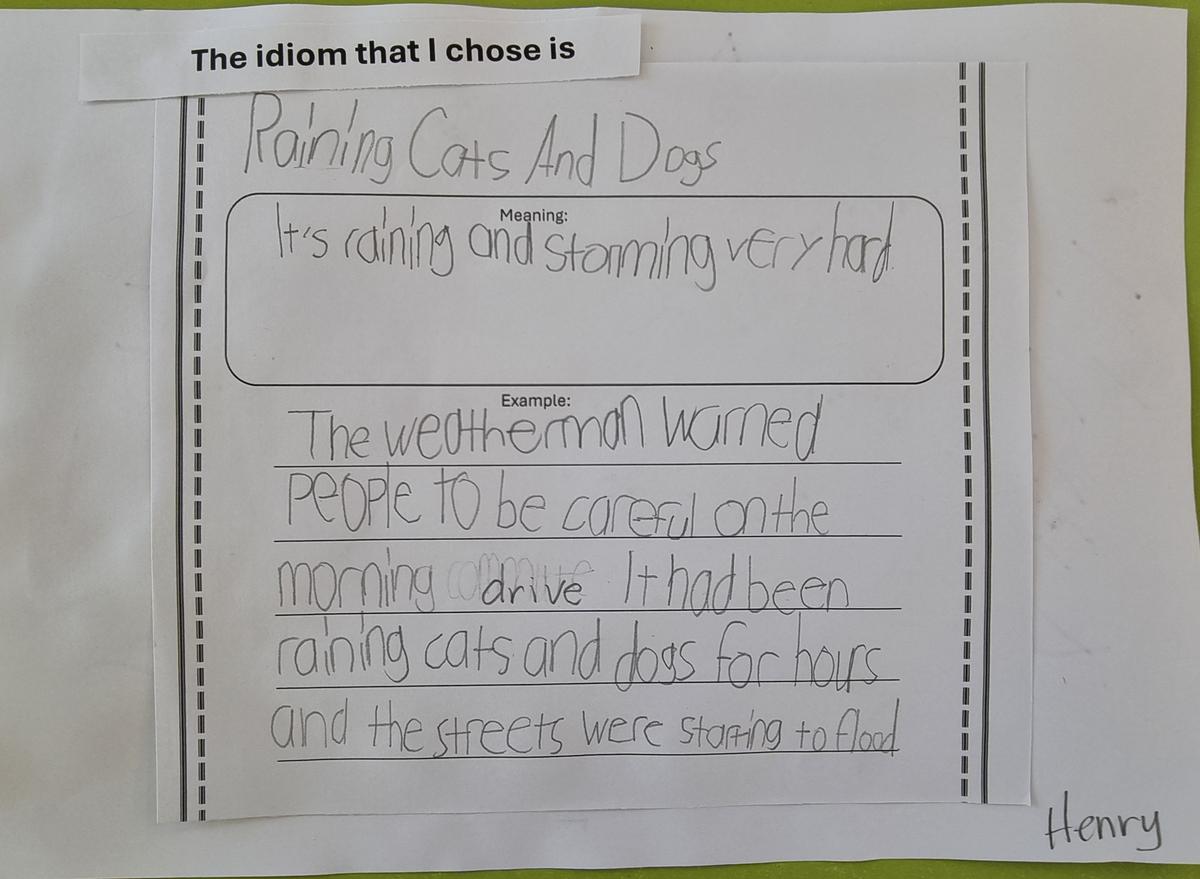 The idiom that I chose is
Raining Cats And Dogs
Meaning:
It's raining and storming very hard.
Example:
The weatherman warned
PEOPlE TO be careful on the
morning drive It had been
raining cats and dogs for hours
and the streets were starting to flood
Henry